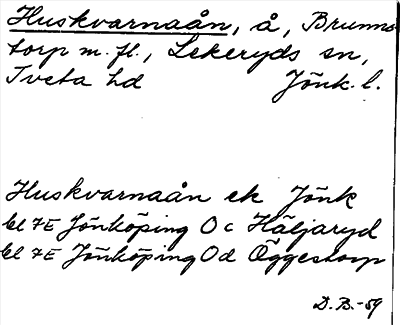 Huskvarnaån, å, Brunns
torp m. fl., Lekeryds sn,
Tveta hd Jönk. l.
Huskvarnaån ek Jönk
bl 7E Jönköping 0c Häljaryd
bl 7E Jönköping 0d Öggestorp
D.B.-59